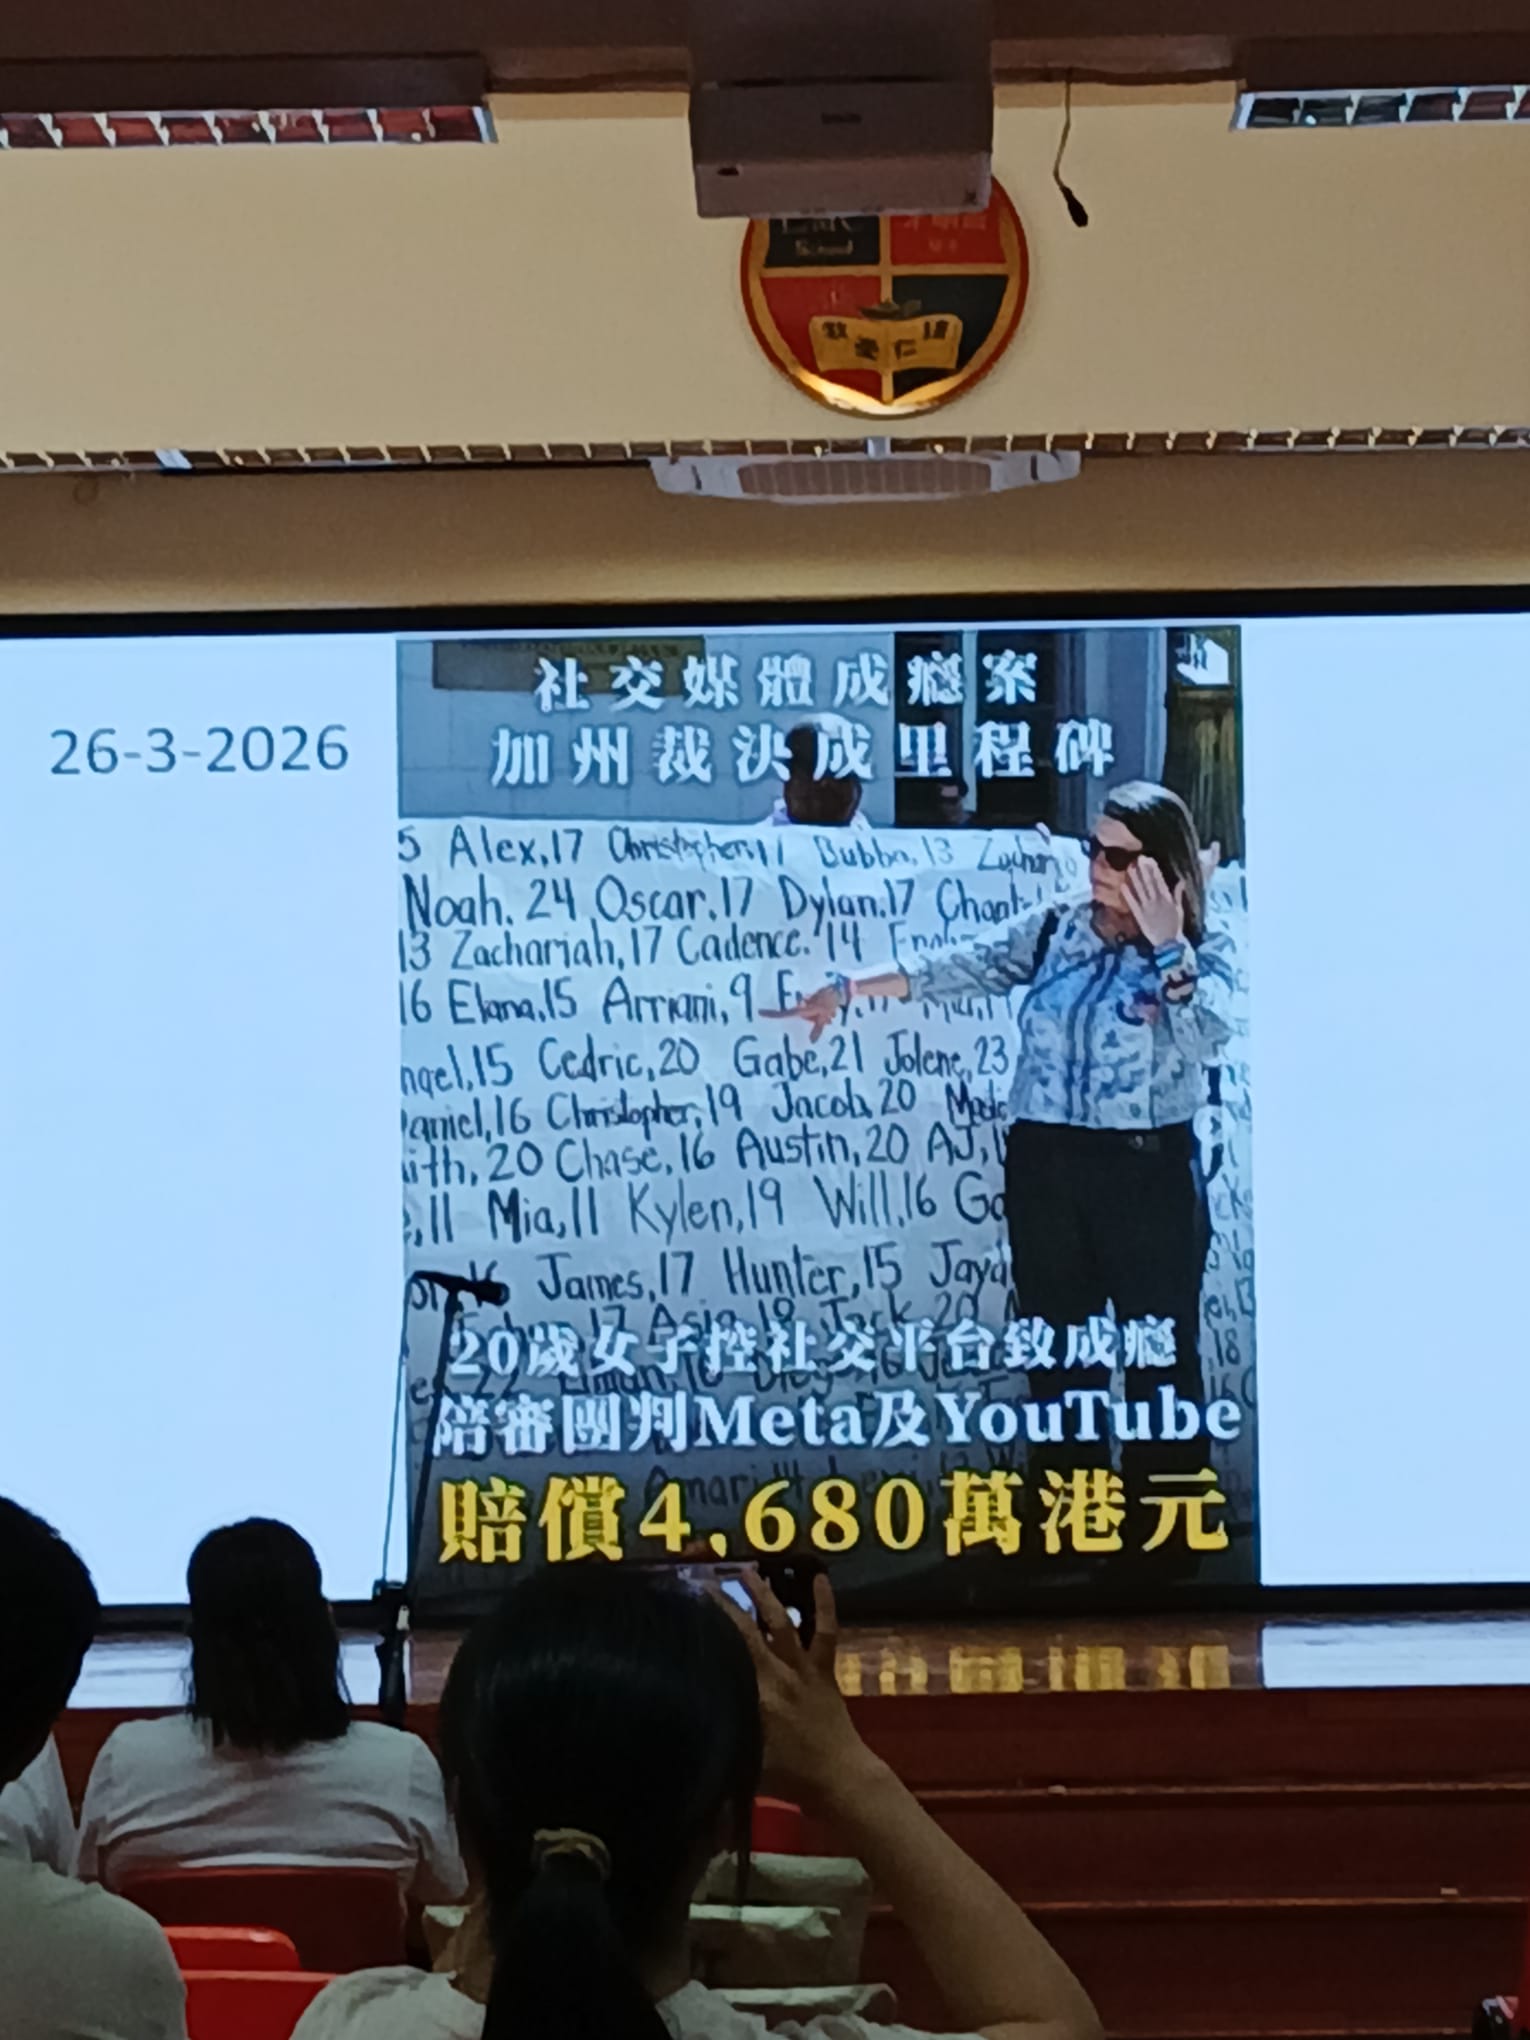 School
26-3-2026
社交媒體成癮案
加州裁決成里程碑
5 Alex,17 Christopher,17 Bubba,13
Noah, 24 Oscar,17 Dylan,17
13 Zachariah,17 Cadence, 14
16 Elana,15 Arriani,9
15 Cedric,20 Gabe,21 Jolene,23
16 Christopher,19 Jacob, 20
20 Chase,16 Austin,20 AJ,
,11 Mia,11 Kylen,19 Will,16
16 James,17 Hunter,15
17 Asia,18 Jack, 20
20歲女子控社交平台致成癮
陪審團判Meta及YouTube
賠償4,680萬港元